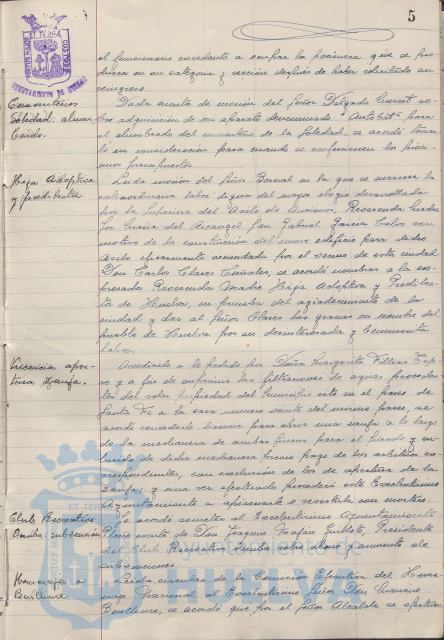 5
el funcionario excedente a ocupar la primera que se pro-
duzca en su categoria y sección después de haber solicitado su
reingreso.
Cementerio
Soledad, alum-
brado.
Dada cuenta de moción del Señor Delgado so-
bre adquisición de un aparato denominado "Autobat" para
el alumbrado del cementerio de la Soledad, se acordó tomar-
lo en consideración para cuando se confeccionen los próxi-
mos presupuestos.
Hija Adoptiva
y Predilecta
Leída moción del Señor Bernal en la que se encarece la
extraordinaria labor digna del mayor elogio desarrollada
por la Superiora del Asilo de Ancianos, Reverenda Madre
Sor María del Arcangel San Gabriel García Calvo con
motivo de la construcción del nuevo edificio para dicho
Asilo eficazmente secundada por el vecino de esta ciudad
Don Carlos Claros, se acordó nombrar a la ex-
presada Reverenda Madre Hija Adoptiva y Predilec-
ta de Huelva, en prueba del agradecimiento de la
ciudad y dar al Señor Claros las gracias en nombre del
pueblo de Huelva por su desinteresada y
labor.
Licencia aper-
tura zanja.
Accediendo a lo pedido por Doña Margarita
y a fin de suprimir las filtraciones de aguas proceden-
tes del solar propiedad del Municipio sito en el paseo de
Santa Fé a la casa número veinte del mismo paseo, se
acordó concederle licencia para abrir una zanja a lo largo
de la medianera de ambas fincas para el picado y en-
lucido de dicha medianera previo pago de los arbitrios co-
rrespondientes, con exclusión de los de apertura de la
zanja, y una vez efectuado procederá este Excelentísimo
Ayuntamiento a
Club Recreativo
Onuba, subvención
Se acordó someter al Excelentísimo Ayuntamiento
Pleno escrito de Don Joaquin, Presidente
del Club Recreativo Onuba sobre pago y aumento de
subvenciones.
Homenaje a
Benlliure
Leída circular de la Comisión Ejecutiva del Home-
naje Nacional al Excelentísimo Señor Don Mariano
Benlliure, se acordó que por el Señor Alcalde se efectúen